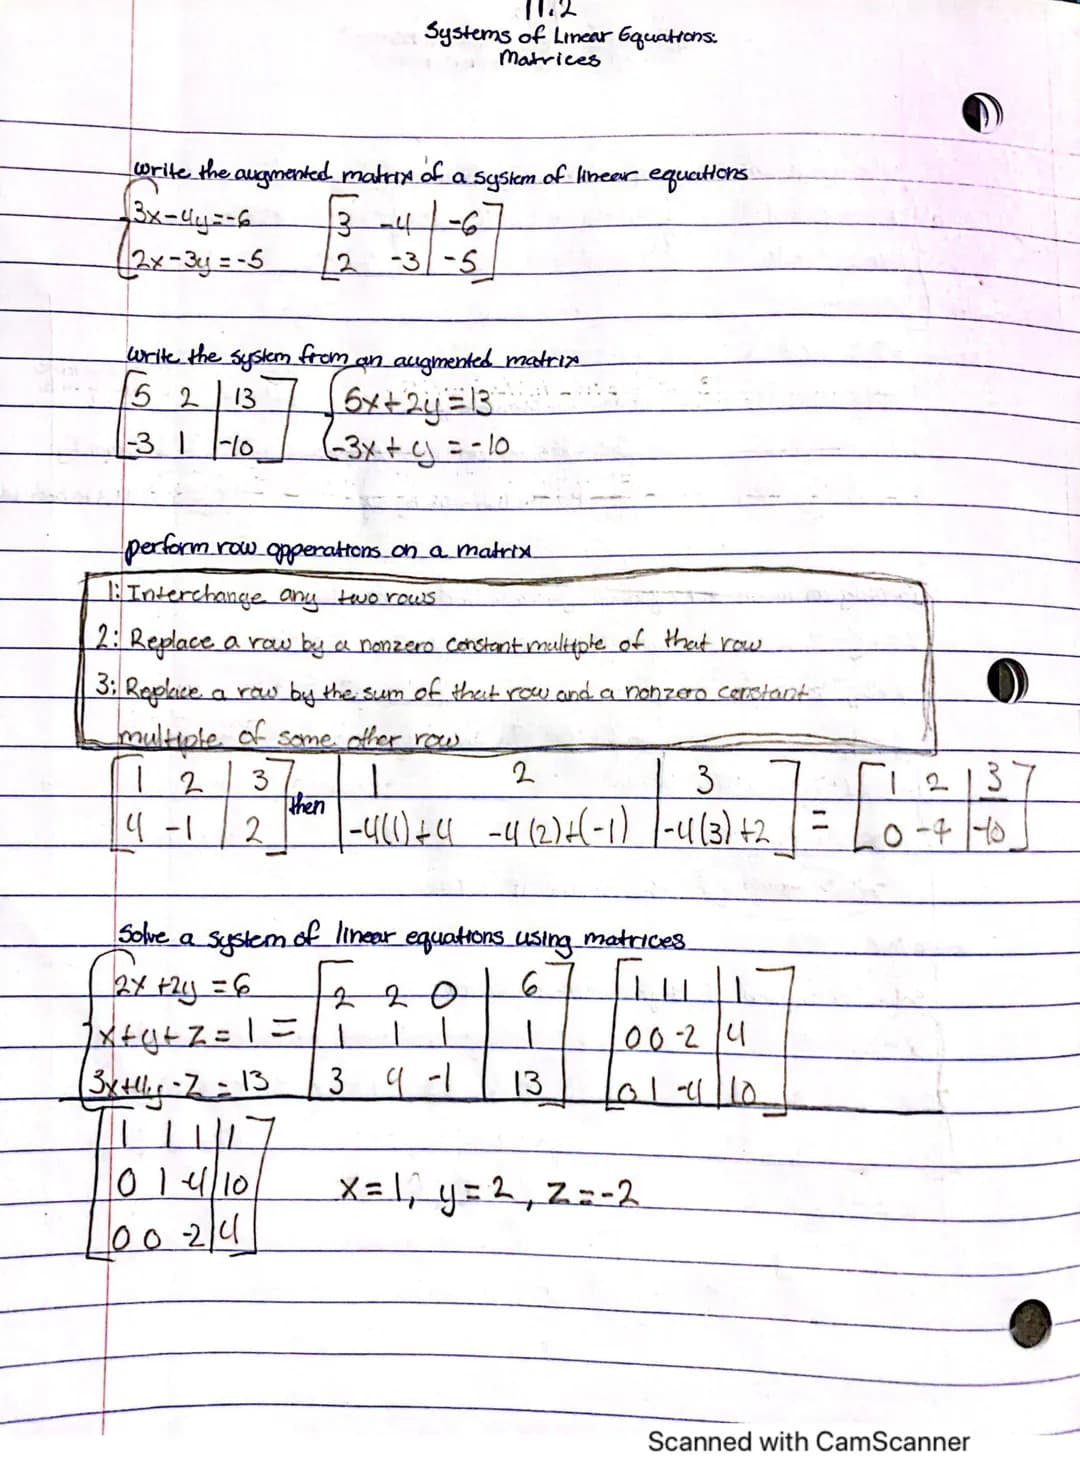 11.2
Systems of Linear Equations:
Matrices
write the augmented matrix of a system of linear equations
3x-4y=-6 [3 -4 | -6]
2x-3y=-5 [2 -3 | -5]
write the system from an augmented matrix
[5 2 | 13] 5x+2y=13
[-3 1 | -10] -3x+y=-10
perform row opperations on a matrix
1: Interchange any two rows
2: Replace a row by a nonzero constant multiple of that row
3: Replace a row by the sum of that row and a nonzero constant
multiple of some other row
[1 2 | 3] then [1 2 | 3] = [1 2 | 3]
[4 -1 | 2] [-4(1)+4 -4(2)+(-1) | -4(3)+2] [0 -9 | -10]
Solve a system of linear equations using matrices
2x+2y=6 [2 2 0 | 6] [1 1 1 | 1]
x+y+z=1 = [1 1 1 | 1] [0 0 -2 | 4]
3x+4y-z=13 [3 4 -1 | 13] [0 1 -4 | 10]
[1 1 1 | 1]
[0 1 -4 | 10] x=1, y=2, z=-2
[0 0 -2 | 4]
Scanned with CamScanner